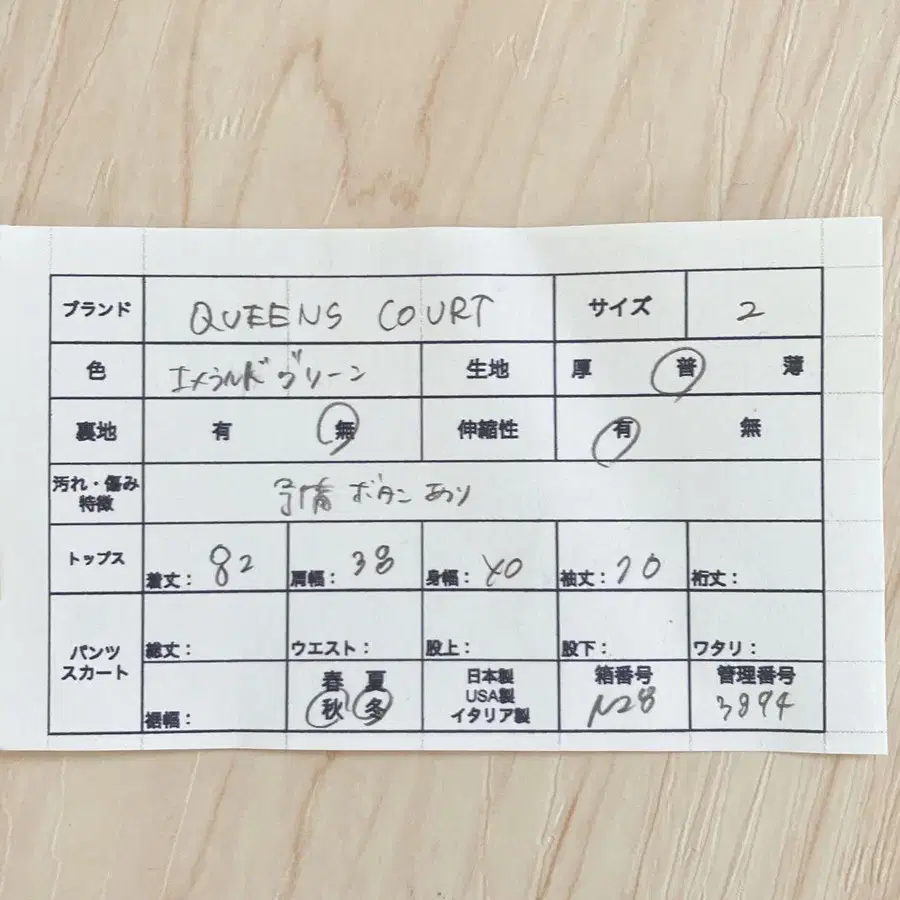 ブランド QUEENS COURT サイズ 2
色 エメラルドグリーン 生地 厚 普 薄
裏地 有 無 伸縮性 有 無
汚れ・傷み
特徴 予備ボタンあり
トップス 着丈: 82 肩幅: 38 身幅: 40 袖丈: 70 裄丈:
パンツ
スカート 総丈: ウエスト: 股上: 股下: ワタリ:
裾幅: 春 夏
秋 冬
日本製
USA製
イタリア製
箱番号
N28
管理番号
3894